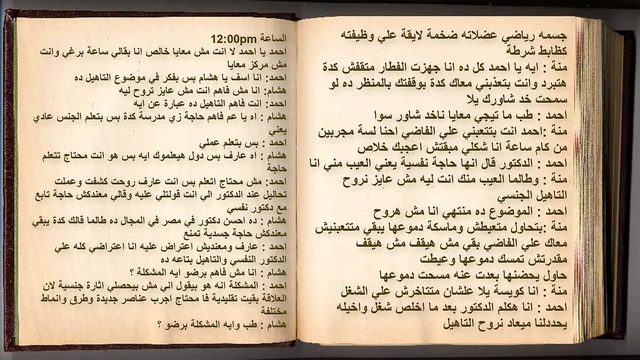 جسمه رياضي عضلاته ضخمة لايقة علي وظيفته
كظابط شرطة
منة : ايه يا احمد كل ده انا جهزت الفطار متقفش كدة
هتبرد وانت بتعذبني معاك كدة بوقفتك بالمنظر ده لو
سمحت خد شاورك يلا
احمد : طب ما تيجي معايا ناخد شاور سوا
منة :احمد انت بتتعبني علي الفاضي احنا لسة مجربين
من كام ساعة انا شكلي مبقتش اعجبك خلاص
احمد : الدكتور قال انها حاجة نفسية يعني العيب مني انا
منة : وطالما العيب منك انت ليه مش عايز نروح
التاهيل الجنسي
احمد : الموضوع ده منتهي انا مش هروح
منة :بتحاول متعيطش وماسكة دموعها يبقي متتعبنيش
معاك علي الفاضي بقي مش هيقف مش هيقف
مقدرتش تمسك دموعها وعيطت
حاول يحضنها بعدت عنه مسحت دموعها
منة : انا كويسة يلا علشان متتاخرش علي الشغل
احمد : انا هكلم الدكتور بعد ما اخلص شغل واخيله
يحددلنا ميعاد نروح التاهيل
الساعة 12:00pm
احمد يا احمد لا انت مش معايا خالص انا بقالي ساعة برغي وانت
مش مركز معايا
احمد: انا اسف يا هشام بس بفكر في موضوع التاهيل ده
هشام : انا مش فاهم انت مش عايز تروح ليه
احمد: انت فاهم التاهيل ده عبارة عن ايه
هشام : اه يا عم فاهم حاجة زي مدرسة كدة بس بتعلم الجنس عادي
يعني
احمد : بس بتعلم عملي
هشام : اه عارف بس دول هيعلموك ايه بس هو انت محتاج تتعلم
حاجة
احمد: مش محتاج اتعلم بس انت عارف روحت كشفت وعملت
تحاليل عند الدكتور الي انت قولتلي عليه وقالي معندكش حاجة تابع
مع دكتور نفسي
هشام : ده احسن دكتور في مصر في المجال ده طالما قالك كدة يبقي
معندكش حاجة جسدية تمنع
احمد : عارف ومعنديش اعتراض عليه انا اعتراضي كله علي
الدكتور النفسي والتاهيل بتاعه ده
هشام : انا مش فاهم برضو ايه المشكلة ؟
احمد : المشكلة انه هو بيقول اني مش بيحصلي اثارة جنسية لان
العلاقة بقيت تقليدية فا محتاج اجرب عناصر جديدة وطرق وانماط
مختلفة
هشام : طب وايه المشكلة برضو ؟